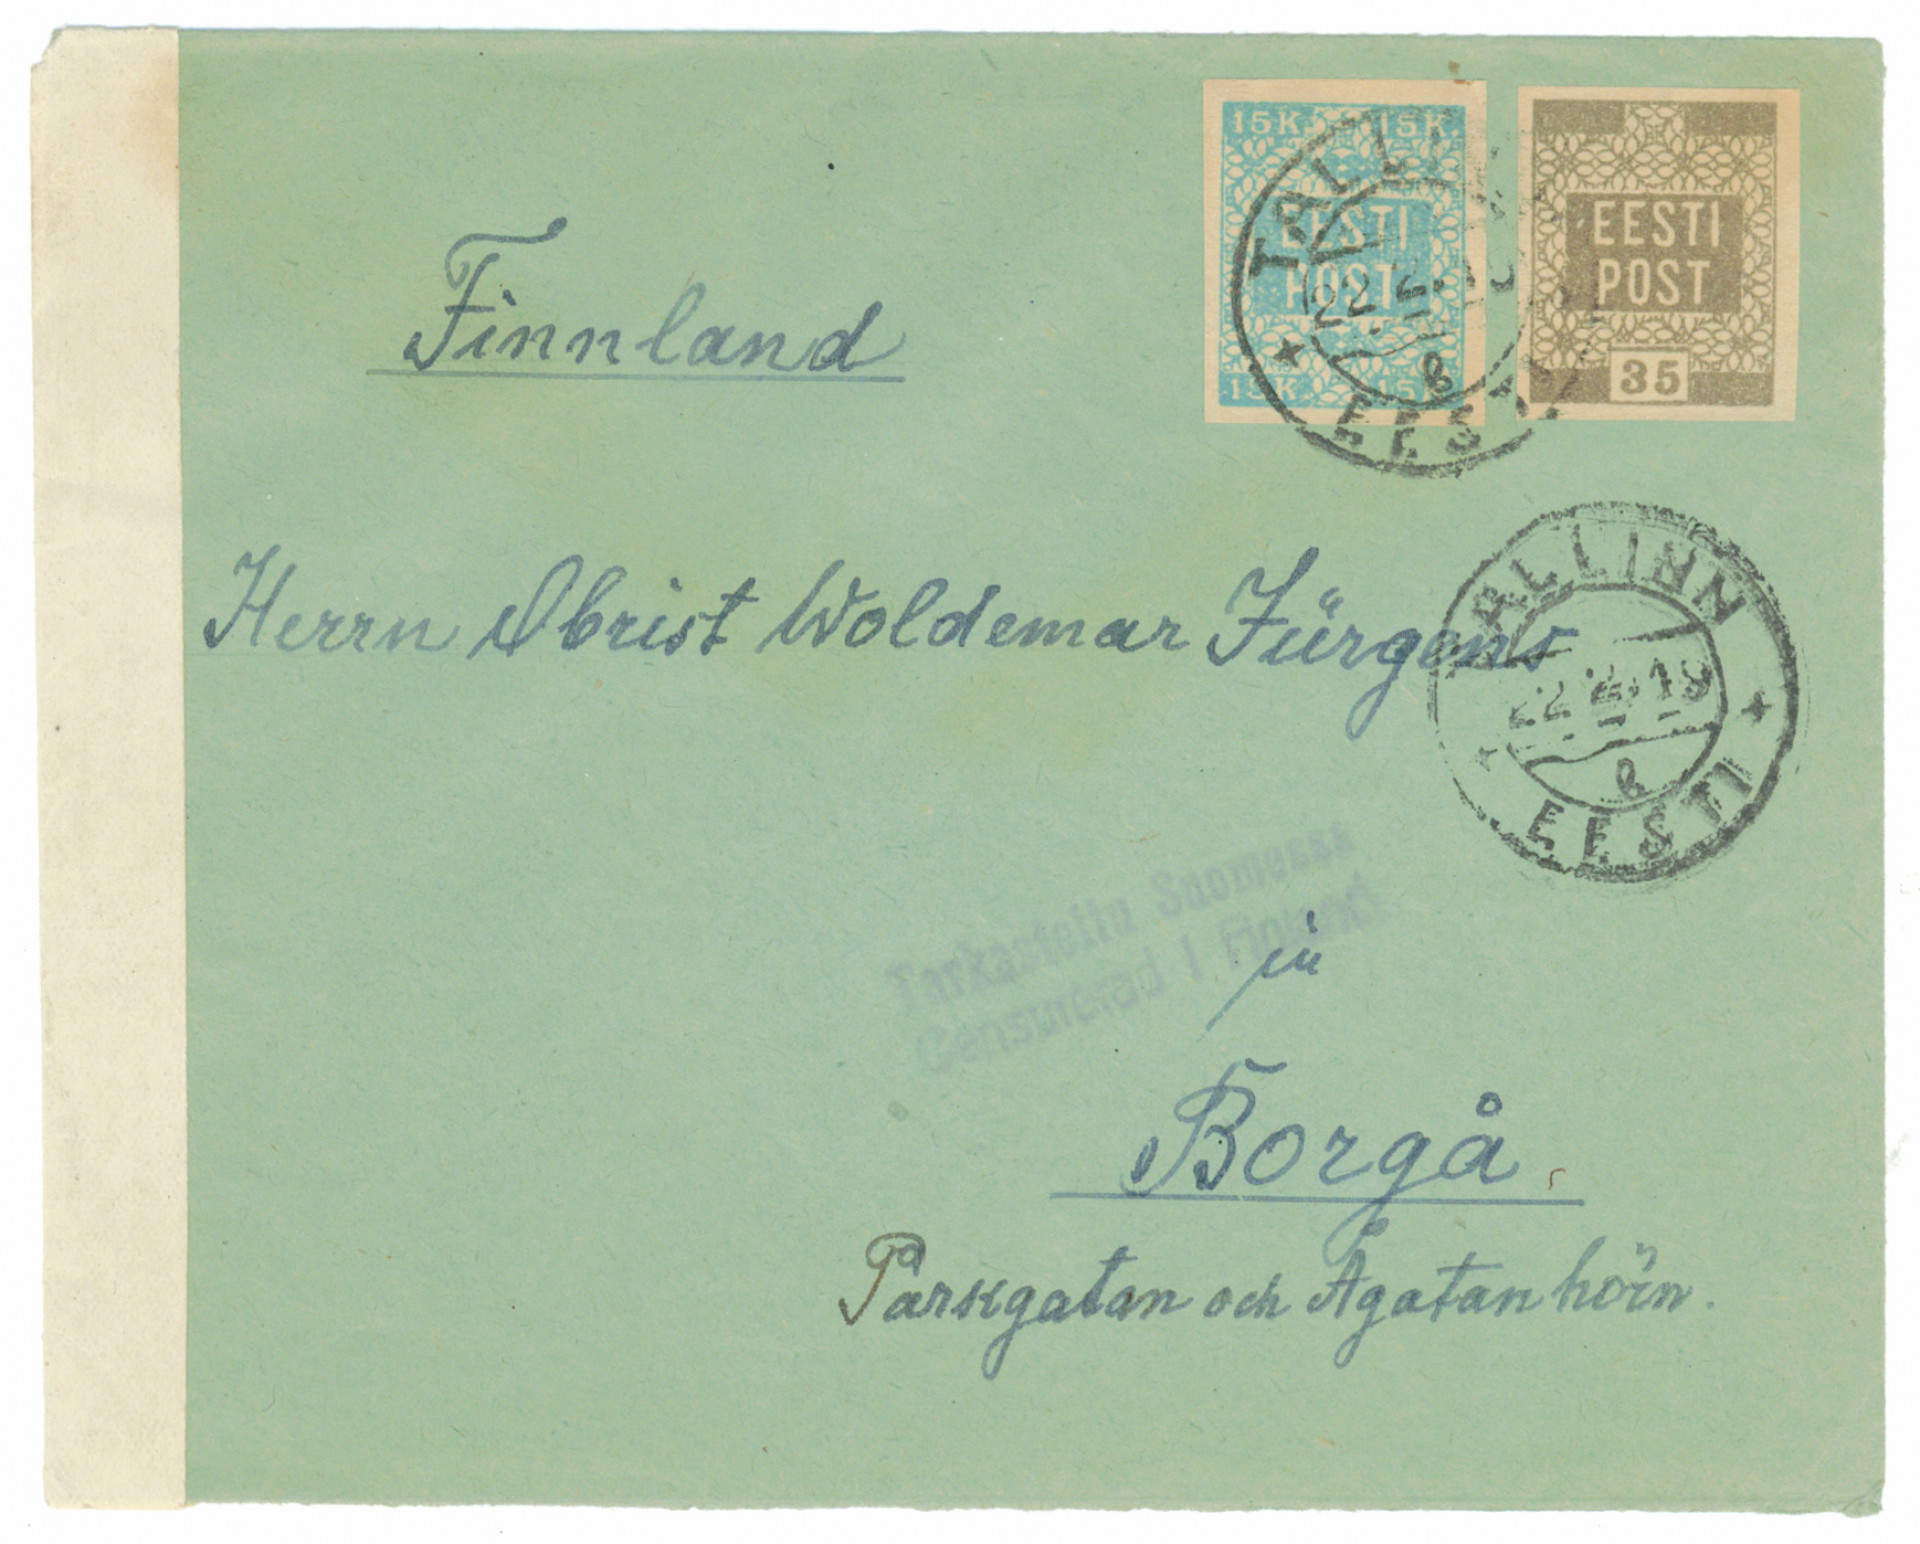 15K. 15K.
EESTI
POST
15K. 15K.
EESTI
POST
35
TALLINN
22 2 19
EESTI
Finnland
Herrn Obrist Woldemar Jürgens
TALLINN
22 2 19
EESTI
Tarkastettu Suomessa
Censurerad i Finland.
in
Borgå.
Parkgatan och Ågatan hörn.